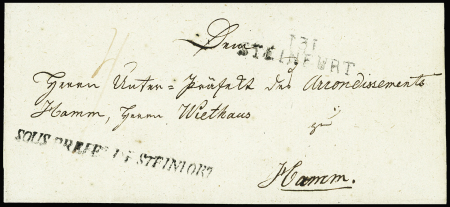 Dem
131
STEINFURT
Herrn Unter=Präfekt des Arrondissements
Hamm, Herrn Wiethaus
zu
SOUS PREFET DE STEINFORT
Hamm.